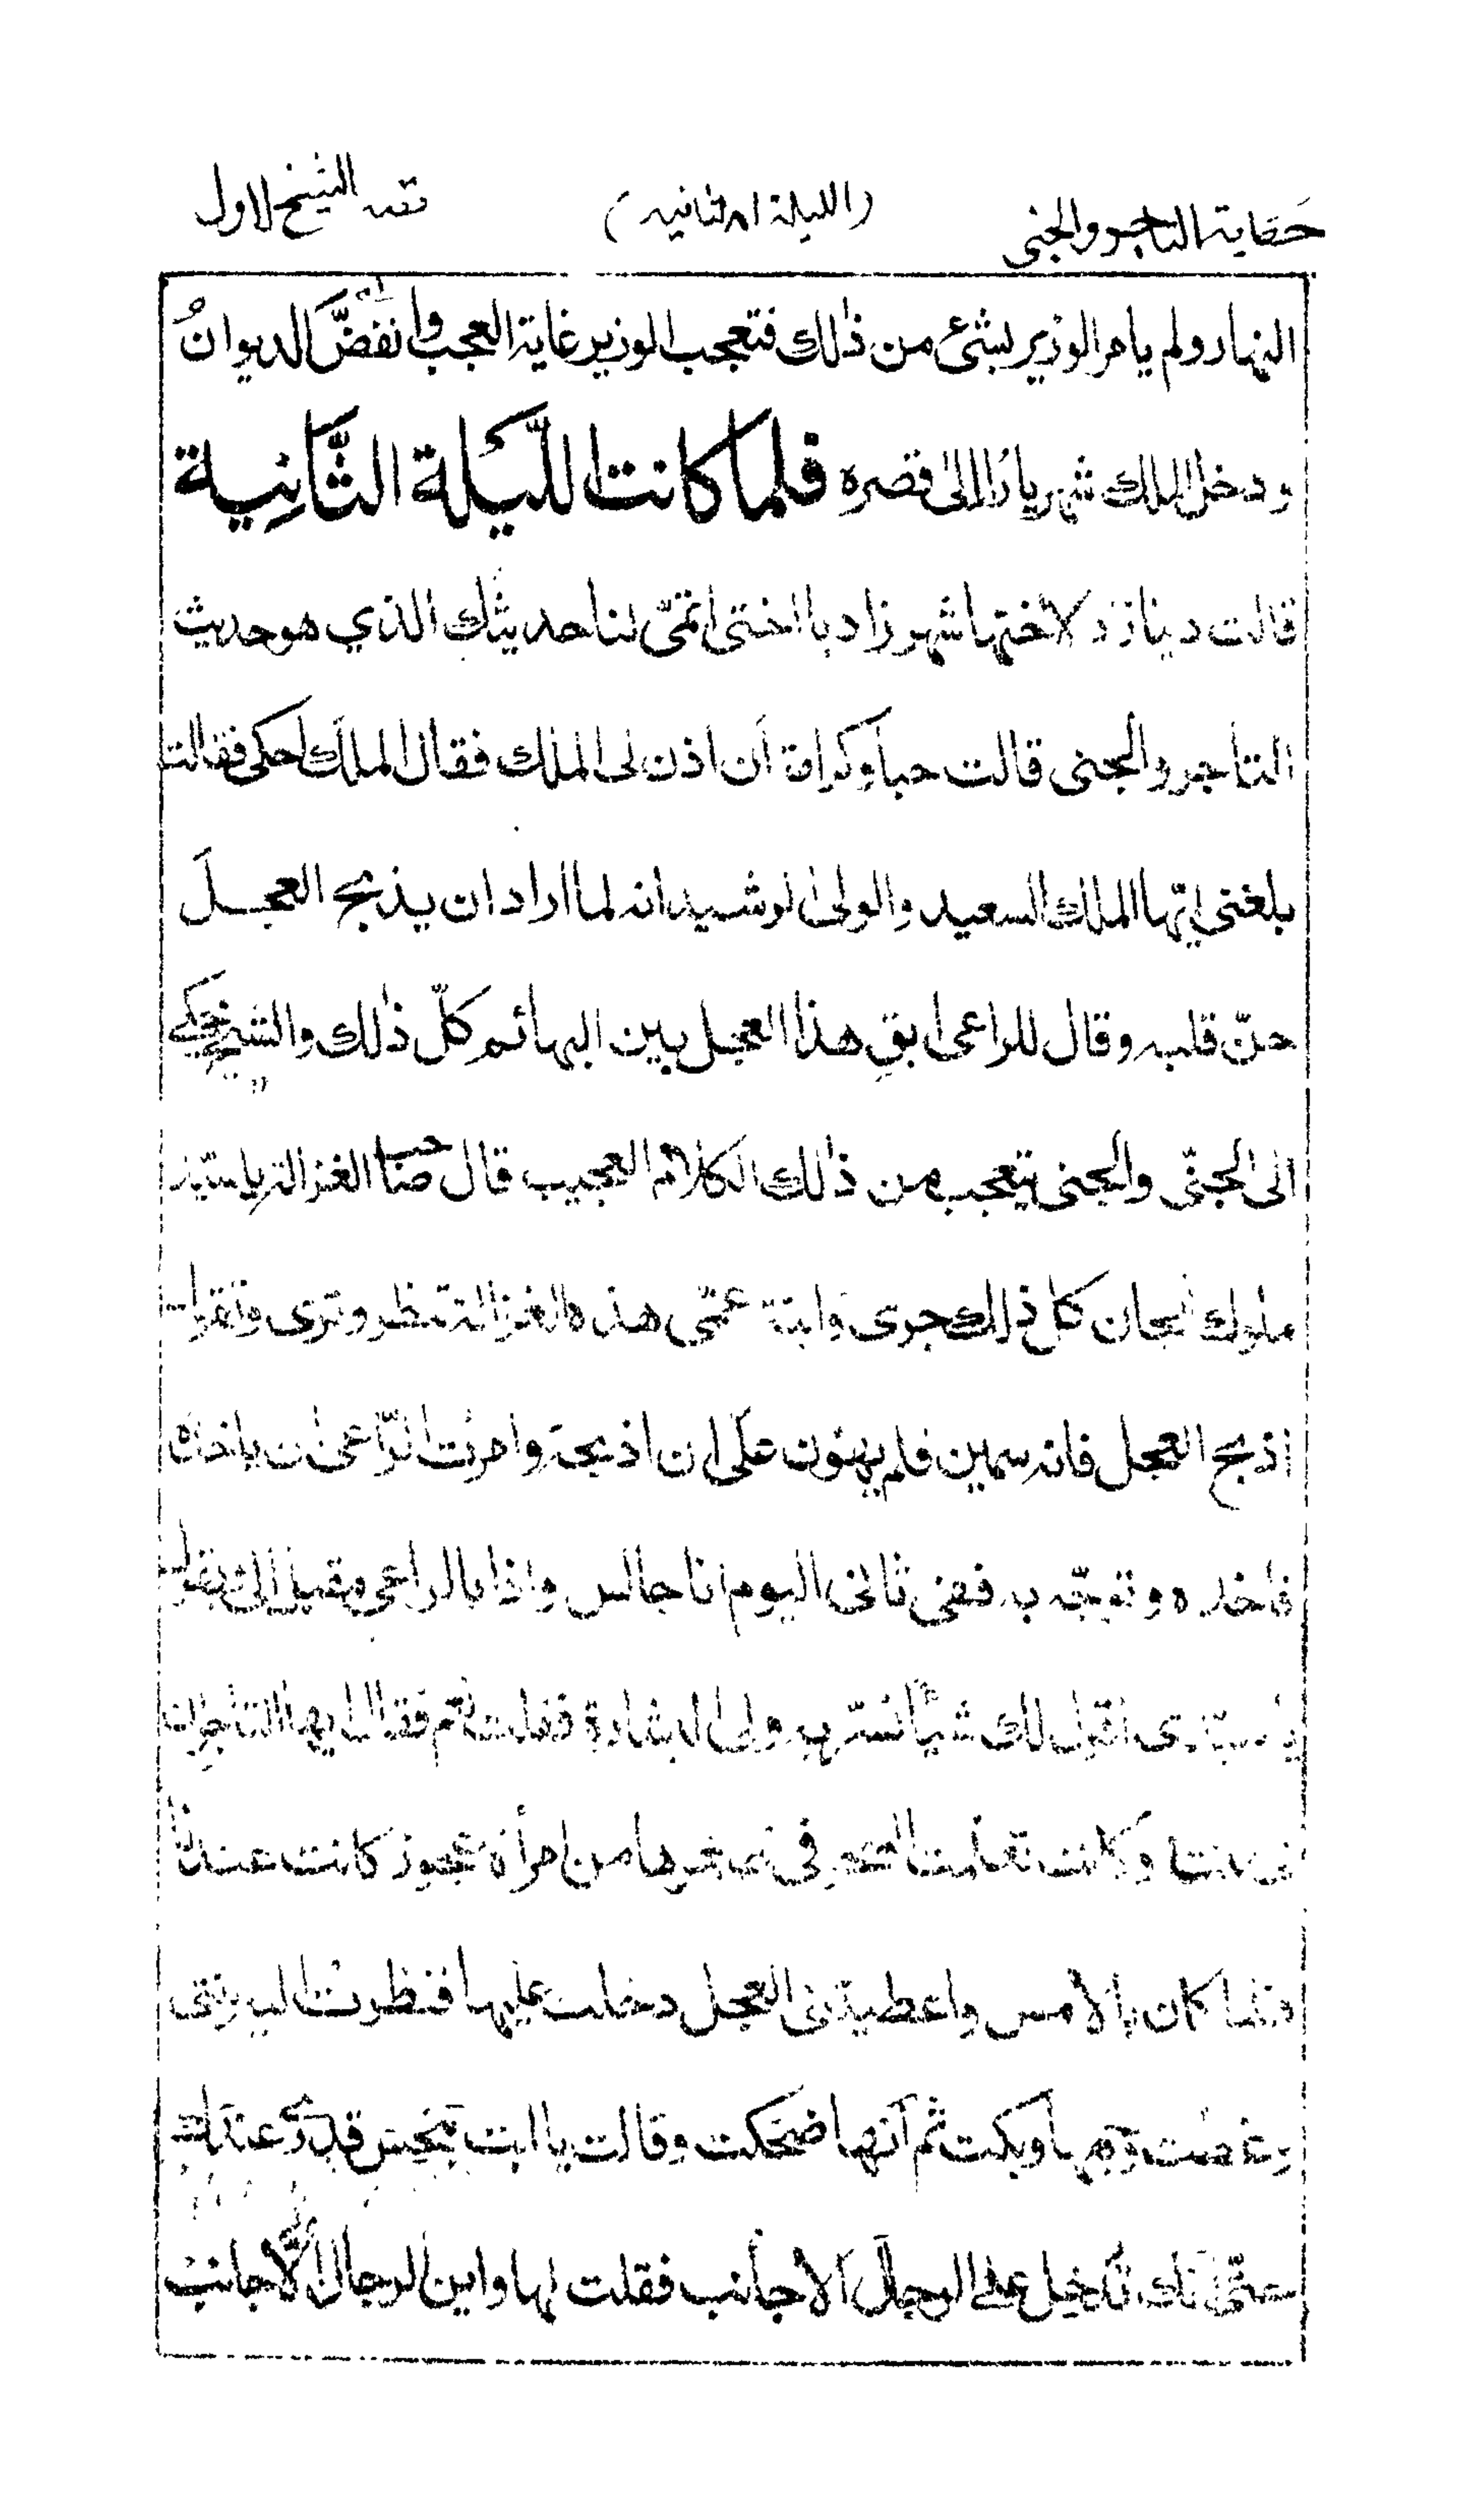 حكاية التاجر والجنى (الليلة الثانيه) قصه الشيخ الاول
النهار ولم يامر الوزير بشئ من ذلك فتعجب الوزير غاية العجب وانفضّ الديوانُ
ودخل الملك شهريار الى قصره فلما كانت اللّيلة الثّانِية
قالت دينازد لاختها شهرزاد يا اختى اتمّى لنا حديثك الذي هو حديث
التاجر والجنى قالت حبا وكرامة ان اذن لى الملك فقال الملك احكى فقالت
بلغنى ايّها الملك السعيد والولى الرشيد انه لما اراد ان يذبح العجـل
حنّ قلبه وقال للراعى ابقِ هذا العجل بين البهائم كلّ ذلك والشيخ يحكى
الى الجنّى والجنى يتعجب من ذلك الكلام العجيب قال صاحب الغزالة يا سيّد
ملوك الجان كل ذلك جرى وابنة عمّى هذه الغزالة تنظر وترى وتقول
اذبح العجل فانه سمين فلم يهُون علىّ ان اذبحه وامرت الرّاعى ان ياخذه
فاخذه وتوجّه به ففى ثانى اليوم انا جالس واذا بالراعى مقبل الىّ يقول
يا سيدى اقول لك شيأ تسرّ به ولى البشارة فقلت نعم فقال ايها التاجر ان
لى بنتا وكانت تعلمت السحر فى صغرها من امرأة عجوز كانت عندنا
فلما كان بالامس واعطيتنى العجل دخلت عليها فنظرت اليه بنتى
وغطت وجهها وبكت ثم انّها ضحكت وقالت يا ابت بخس قدرى عندك
حتّى انك تدخل علىّ الرجال الاجانب فقلت لها واين الرجال الاجانب